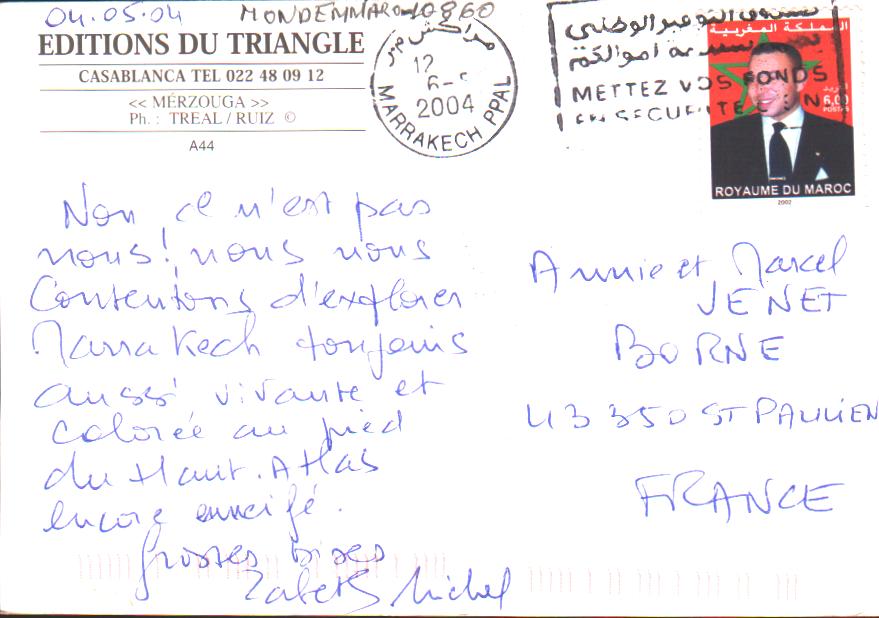 04.05.04
MONDEMMARO-10860
EDITIONS DU TRIANGLE
CASABLANCA TEL 022 48 09 12
<< MÉRZOUGA >>
Ph. : TREAL / RUIZ ©
A44
مراكش
12
6-5
2004
MARRAKECH PPAL
الوطني
METTEZ VOS FONDS
EN SECURITE
المملكة المغربية
6,00
POSTES
ROYAUME DU MAROC
2002
Non ce n'est pas
nous! nous nous
Contentons d'explorer
Marrakech toujours
aussi vivante et
colorée au pied
du Haut.Atlas
encore enneigé.
Grosses bises
Michel
Annie et Marcel
JENET
BORNE
43 350 ST PAULIEN
FRANCE